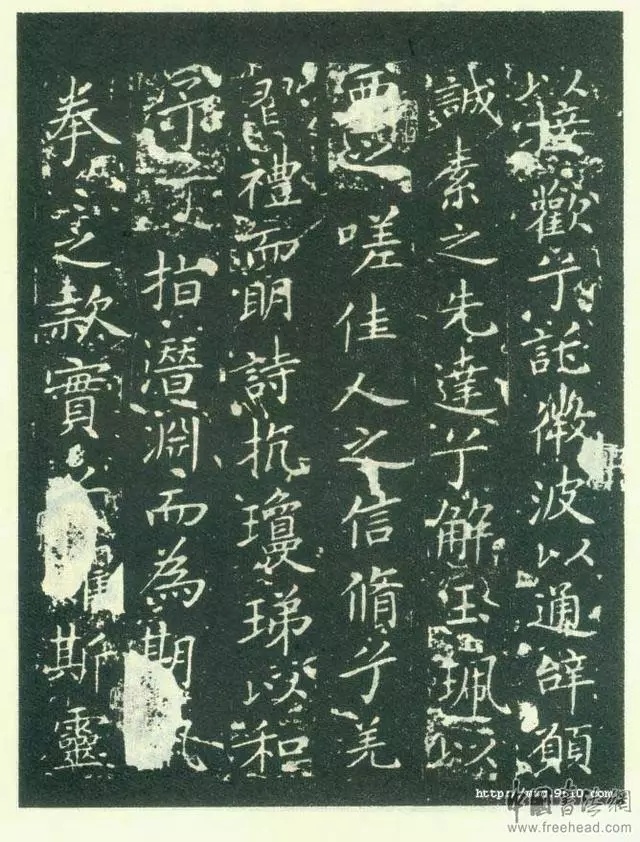 以接歡兮託微波以通辝願
誠素之先達兮解玉珮以
要之嗟佳人之信脩兮羌
習禮而明詩抗瓊珶以和
予兮指潛淵而為期執
拳〻之款實兮懼斯靈
http://www.9610.com/
中國書法網
www.freehead.com